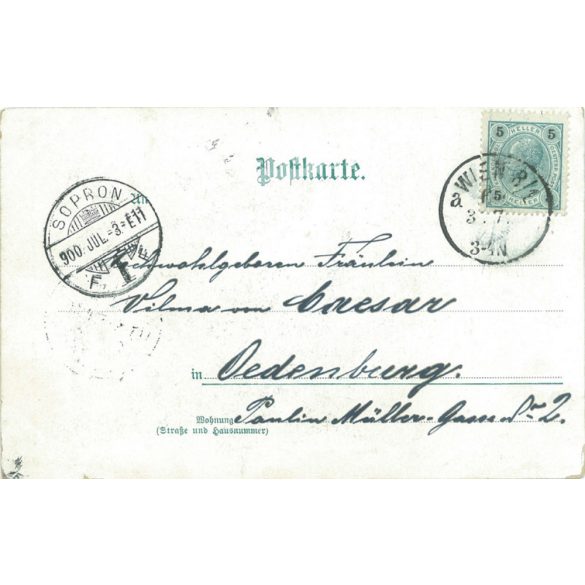 5 5
HELLER
Postkarte.
WIEN 8/1
a
3 7
3-4N
SOPRON
900 JUL.-3-E11
F. 1
An
Hochwohlgeboren Fräulein
Vilma von Caesar
in Oedenburg.
Wohnung Paulin Müller-Gasse Nr 2.
(Straße und Hausnummer)